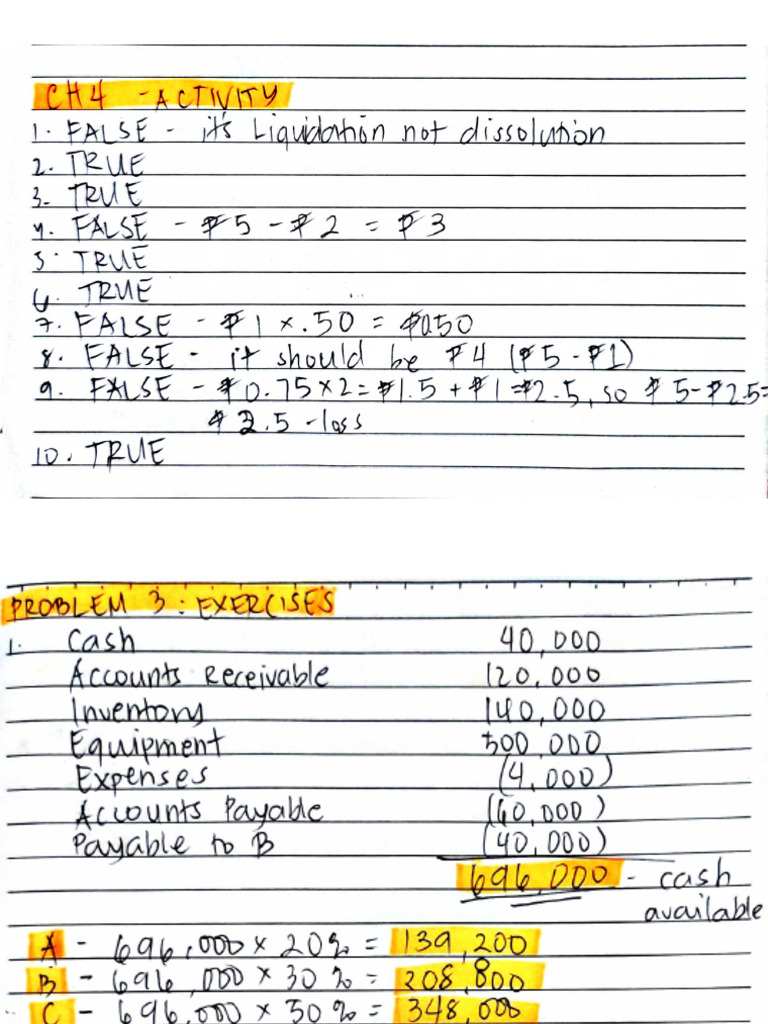 CH4 - ACTIVITY
1. FALSE - it's Liquidation not dissolution
2. TRUE
3. TRUE
4. FALSE - ₱5 - ₱2 = ₱3
5. TRUE
6. TRUE
7. FALSE - ₱1 x .50 = ₱0.50
8. FALSE - it should be ₱4 (₱5 - ₱1)
9. FALSE - ₱0.75 x 2 = ₱1.5 + ₱1 = ₱2.5, so ₱5 - ₱2.5 =
₱2.5 - loss
10. TRUE
PROBLEM 3: EXERCISES
1. Cash 40,000
Accounts Receivable 120,000
Inventory 140,000
Equipment 500,000
Expenses (4,000)
Accounts Payable (60,000)
Payable to B (40,000)
696,000 - cash
available
A - 696,000 x 20% = 139,200
B - 696,000 x 30% = 208,800
C - 696,000 x 50% = 348,000